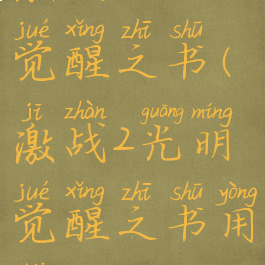 jué xǐng zhī shū
觉醒之书(
jī zhàn guāng míng
激战2光明
jué xǐng zhī shū yòng
觉醒之书用